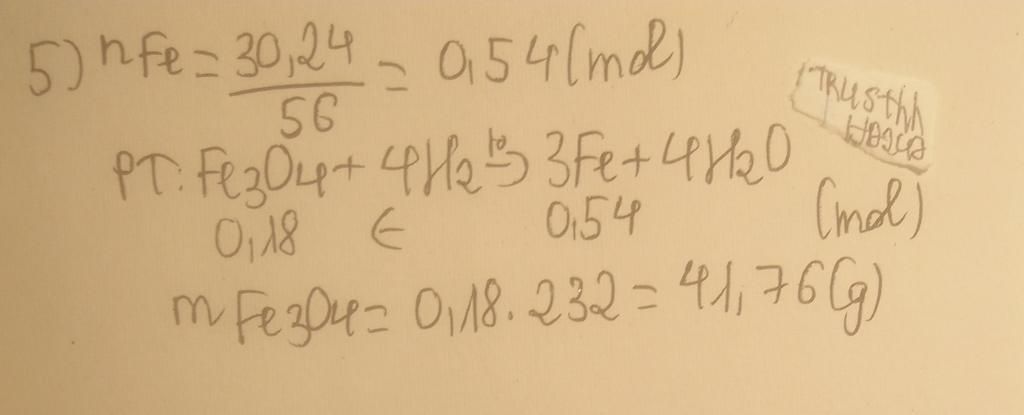 5) nFe = 30,24 / 56 = 0,54 (mol)
PT: Fe3O4 + 4H2 t° → 3Fe + 4H2O
0,18 ← 0,54 (mol)
mFe3O4 = 0,18 . 232 = 41,76 (g)